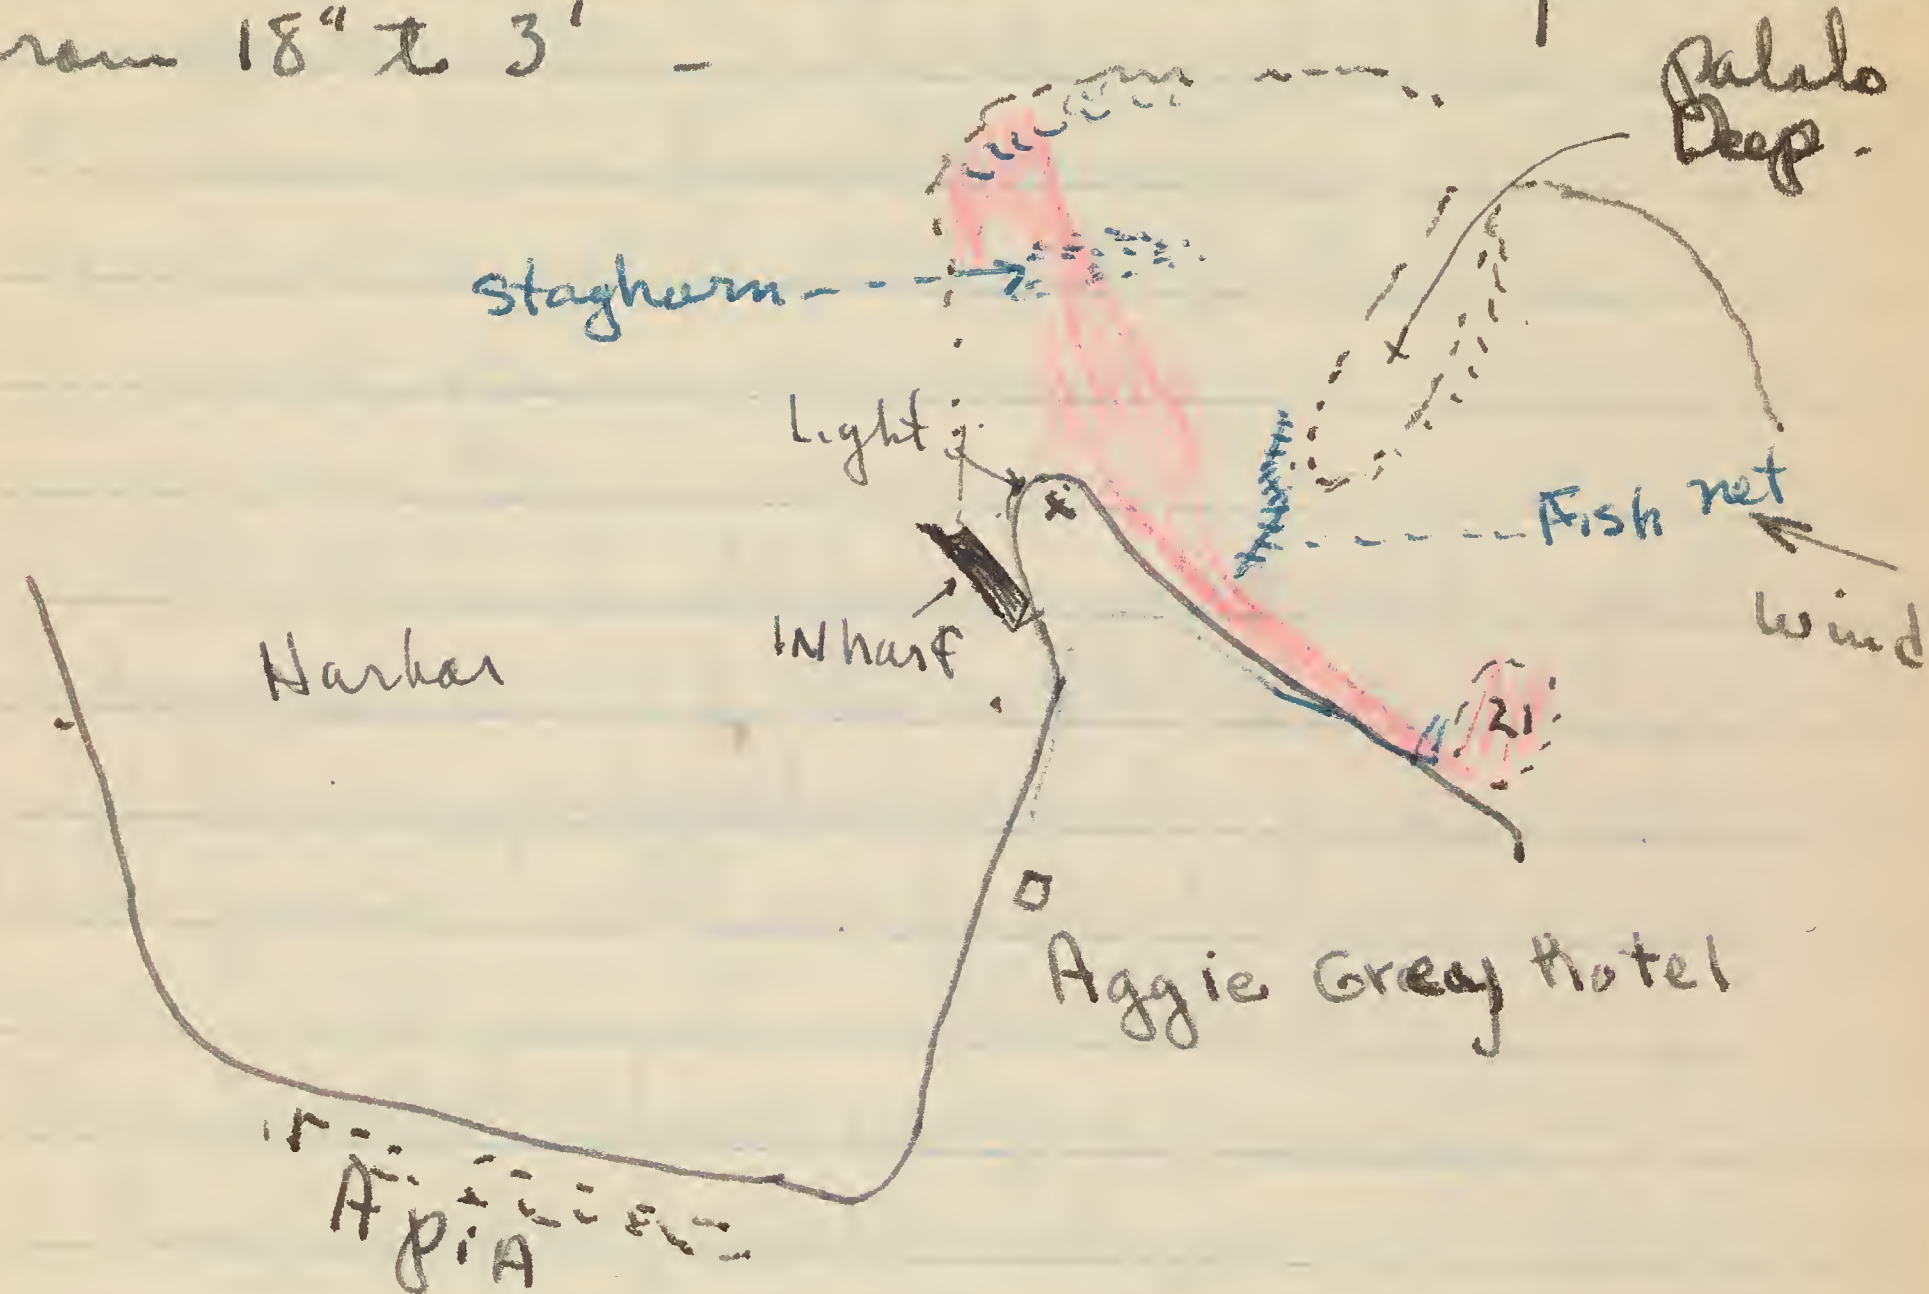 from 18" to 3' -
Palalo
Deep.
staghorn
Light
Fish net
Wind
Wharf
Harbor
21
Aggie Greay Hotel
ApiA